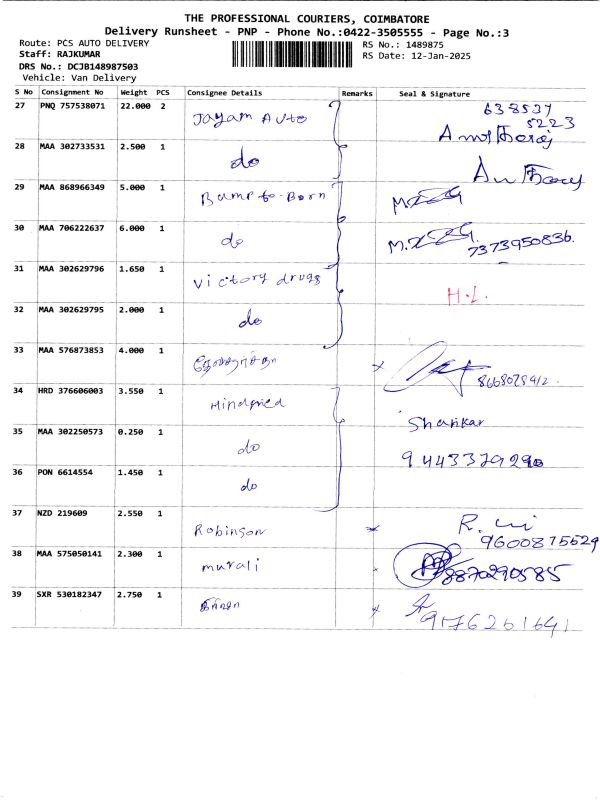 THE PROFESSIONAL COURIERS, COIMBATORE
Delivery Runsheet - PNP - Phone No.:0422-3505555 - Page No.:3
Route: PCS AUTO DELIVERY
RS No.: 1489875
Staff: RAJKUMAR
RS Date: 12-Jan-2025
DRS No.: DCJB148987503
Vehicle: Van Delivery
S No Consignment No Weight PCS Consignee Details Remarks Seal & Signature
27 PNQ 757538071 22.000 2 Jayam Auto 638537
5223
28 MAA 302733531 2.500 1 do
29 MAA 868966349 5.000 1 Bump to Born
30 MAA 706222637 6.000 1 do 7373950836.
31 MAA 302629796 1.650 1 Victory drugs H.L.
32 MAA 302629795 2.000 1 do
33 MAA 576873853 4.000 1
34 HRD 376606003 3.550 1 Shankar
35 MAA 302250573 0.250 1 do
36 PON 6614554 1.450 1 do
37 NZD 219609 2.550 1 Robinson 9600875529
38 MAA 575050141 2.300 1 murali 8870290585
39 SXR 530182347 2.750 1 9176261641